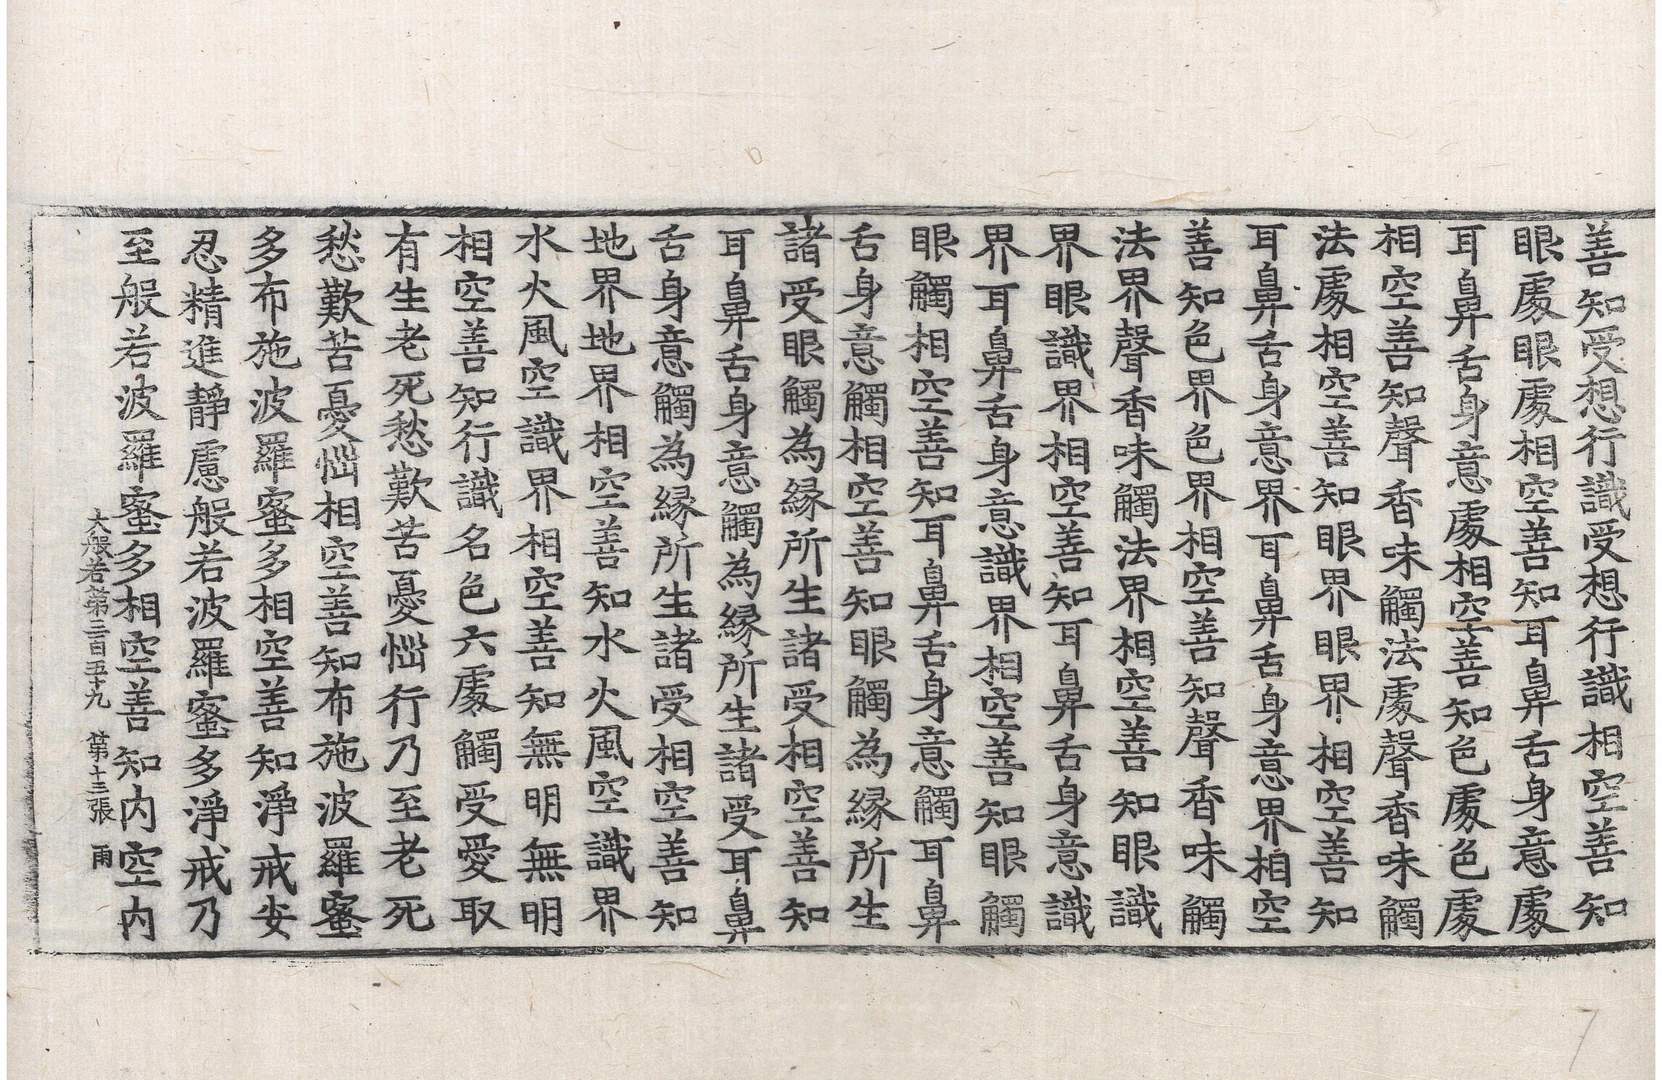 善知受想行識受想行識相空善知
眼處眼處相空善知耳鼻舌身意處
耳鼻舌身意處相空善知色處色處
相空善知聲香味觸法處聲香味觸
法處相空善知眼界眼界相空善知
耳鼻舌身意界耳鼻舌身意界相空
善知色界色界相空善知聲香味觸
法界聲香味觸法界相空善知眼識
界眼識界相空善知耳鼻舌身意識
界耳鼻舌身意識界相空善知眼觸
眼觸相空善知耳鼻舌身意觸耳鼻
舌身意觸相空善知眼觸為縁所生
諸受眼觸為縁所生諸受相空善知
耳鼻舌身意觸為縁所生諸受耳鼻
舌身意觸為縁所生諸受相空善知
地界地界相空善知水火風空識界
水火風空識界相空善知無明無明
相空善知行識名色六處觸受愛取
有生老死愁歎苦憂惱行乃至老死
愁歎苦憂惱相空善知布施波羅蜜
多布施波羅蜜多相空善知淨戒安
忍精進靜慮般若波羅蜜多淨戒乃
至般若波羅蜜多相空善知内空内
大般若第三百五十九 第十三張 雨
7